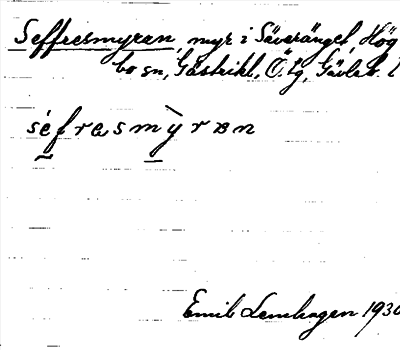 Seffresmyren, myr i Säveränget, Hög
bo sn, Gästrikl., Ö.tg, Gävleb. l
sefrasmỳrən
Emil Lenhagen 1930